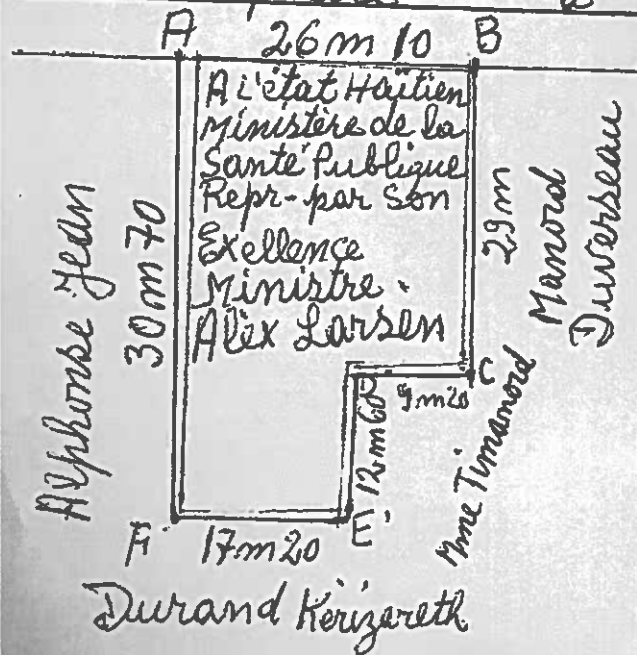 A 26m10 B
A L'état Haïtien
Ministère de la
Santé Publique
Repr-par Son
Exellence
Ministre.
Alex Larsen
Alphonse Jean
30m70
29m
Manord
Duverseau
D C
9m20
12m60
Mme Timanord
F 17m20 E
Durand Kérizareth